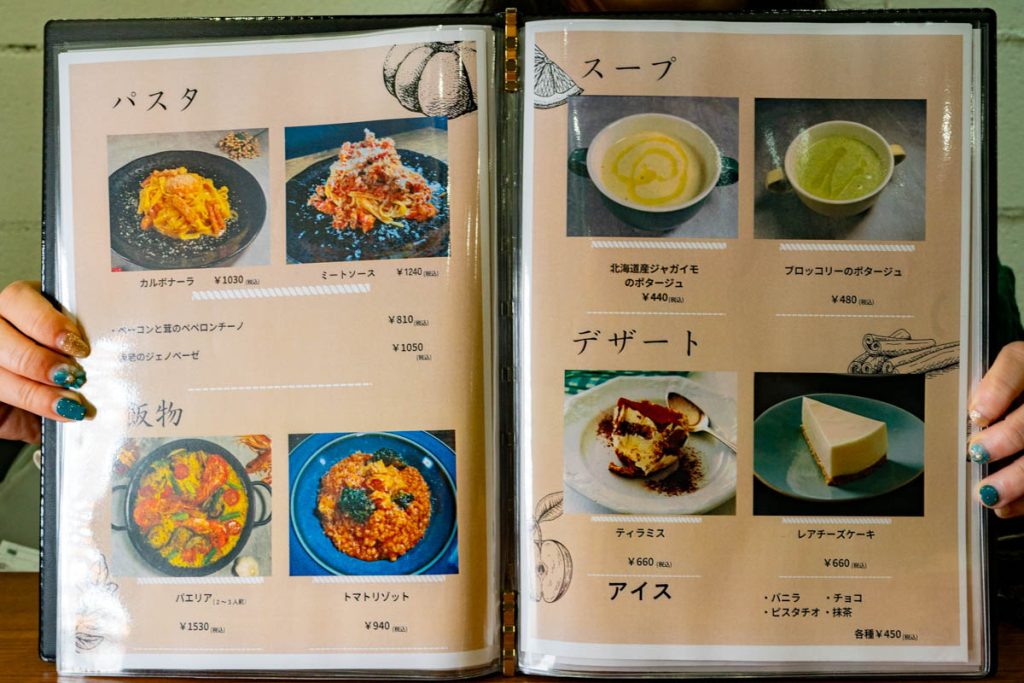 パスタ
カルボナーラ ¥1030(税込)
ミートソース ¥1240(税込)
・ベーコンと茸のペペロンチーノ ¥810(税込)
のジェノベーゼ ¥1050(税込)
飯物
パエリア(2〜3人前)
¥1530(税込)
トマトリゾット
¥940(税込)
スープ
北海道産ジャガイモ
のポタージュ
¥440(税込)
ブロッコリーのポタージュ
¥480(税込)
デザート
ティラミス
¥660(税込)
レアチーズケーキ
¥660(税込)
アイス
・バニラ ・チョコ
・ピスタチオ ・抹茶
各種¥450(税込)